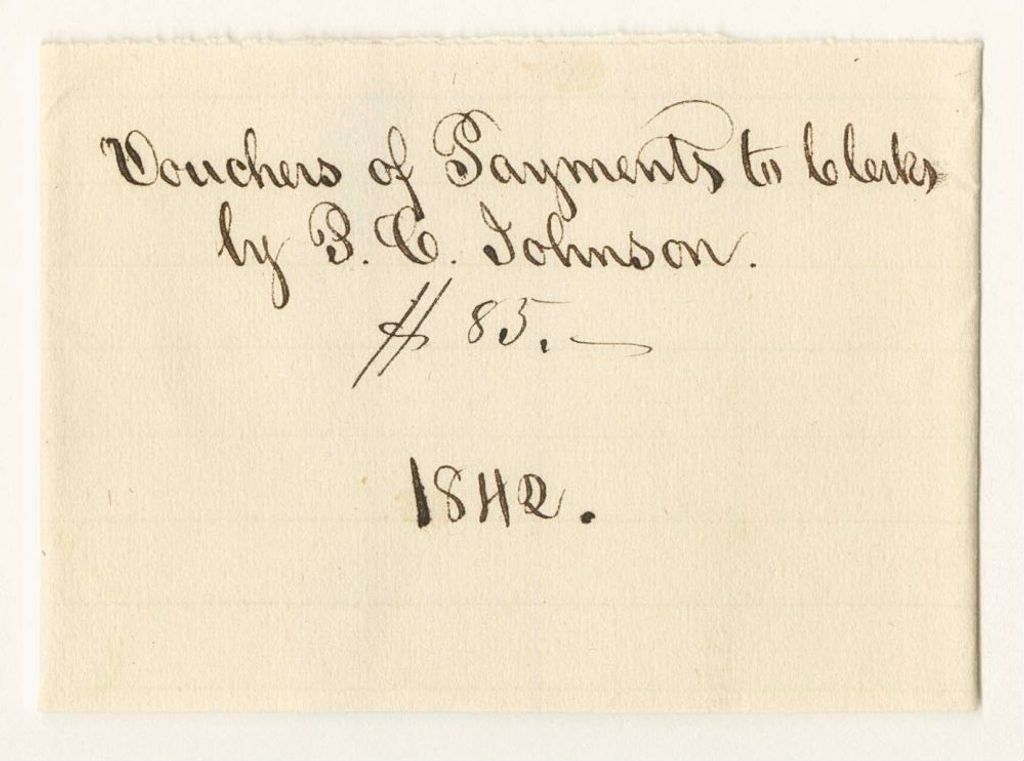 Vouchers of Payments to Clerks
by B. C. Johnson.
# 85.
1842.